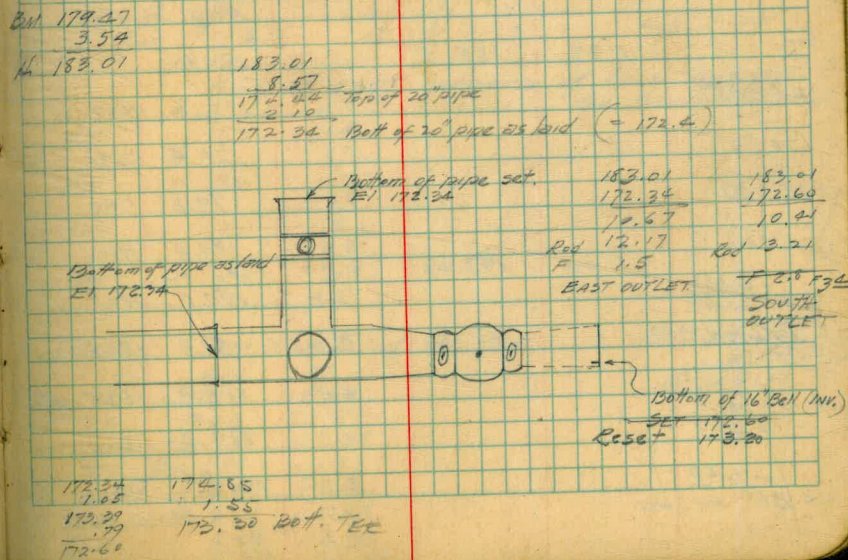 BM 179.47
3.54
183.01
183.01
8.57
174.44 Top of 20" pipe
2 10
172.34 Bott of 20" pipe as laid (= 172.4)
Bottom of pipe set.
El 172.34
183.01
172.34
10.67
Rod 12.17
F 1.5
EAST OUTLET
183.01
172.60
10.41
Rod 13.21
F 2.8 F 3
SOUTH
OUTLET
Bottom of pipe as laid
El 172.34
Bottom of 16" Bell (INV.)
SET 172.60
Reset 173.20
172.34
1.05
173.39
.79
172.60
174.85
1.55
173.30 Bott. TEE